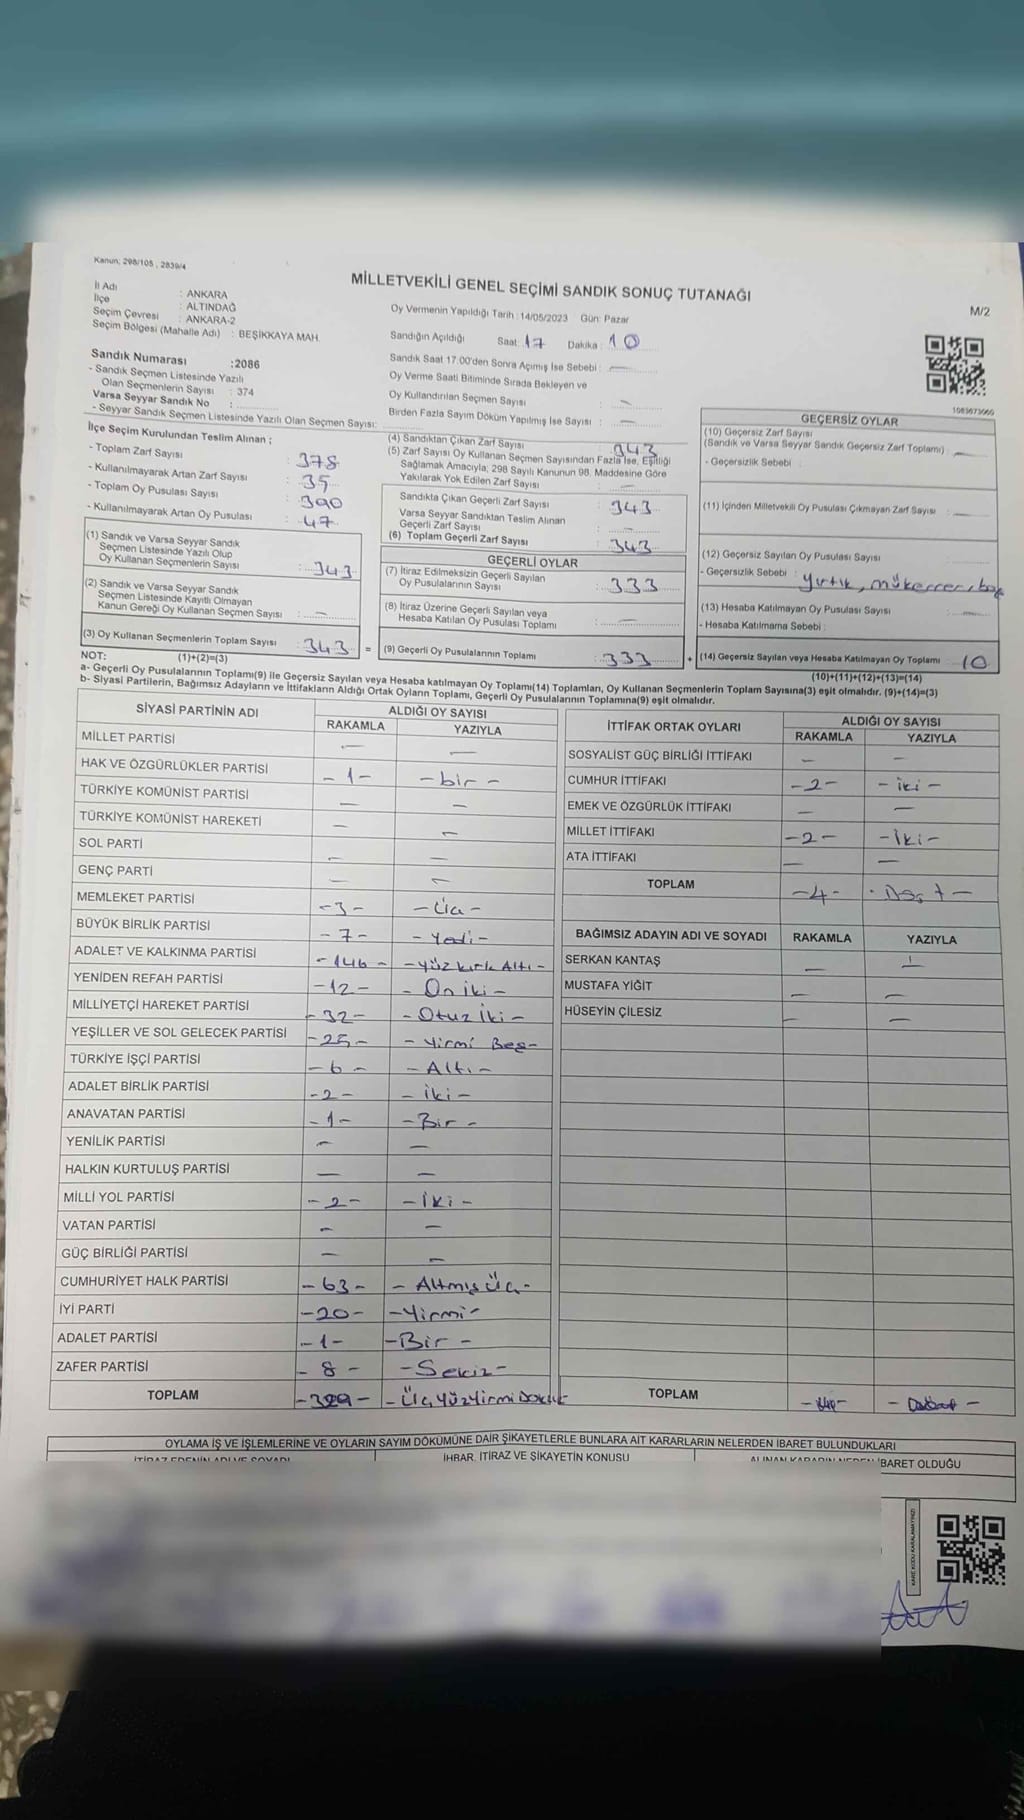 Kanun: 298/105, 2839/4
MİLLETVEKİLİ GENEL SEÇİMİ SANDIK SONUÇ TUTANAĞI
M/2
İl Adı : ANKARA
İlçe : ALTINDAĞ
Seçim Çevresi : ANKARA-2
Seçim Bölgesi (Mahalle Adı) : BEŞİKKAYA MAH.
Oy Vermenin Yapıldığı Tarih :14/05/2023 Gün: Pazar
Sandığın Açıldığı Saat: 17 Dakika: 10
Sandık Saat 17.00'den Sonra Açımış İse Sebebi : —
Oy Verme Saati Bitiminde Sırada Bekleyen ve
Oy Kullandırılan Seçmen Sayısı : —
Birden Fazla Sayım Döküm Yapılmış İse Sayısı : —
Sandık Numarası :2086
- Sandık Seçmen Listesinde Yazılı
Olan Seçmenlerin Sayısı : 374
Varsa Seyyar Sandık No :
- Seyyar Sandık Seçmen Listesinde Yazılı Olan Seçmen Sayısı:
İlçe Seçim Kurulundan Teslim Alınan ;
- Toplam Zarf Sayısı : 378
- Kullanılmayarak Artan Zarf Sayısı : 35
- Toplam Oy Pusulası Sayısı : 390
- Kullanılmayarak Artan Oy Pusulası : 47
(1) Sandık ve Varsa Seyyar Sandık
Seçmen Listesinde Yazılı Olup
Oy Kullanan Seçmenlerin Sayısı : 343
(2) Sandık ve Varsa Seyyar Sandık
Seçmen Listesinde Kayıtlı Olmayan
Kanun Gereği Oy Kullanan Seçmen Sayısı : —
(3) Oy Kullanan Seçmenlerin Toplam Sayısı : 343 =
(4) Sandıktan Çıkan Zarf Sayısı : 343
(5) Zarf Sayısı Oy Kullanan Seçmen Sayısından Fazla İse, Eşitliği
Sağlamak Amacıyla, 298 Sayılı Kanunun 98. Maddesine Göre
Yakılarak Yok Edilen Zarf Sayısı : —
Sandıkta Çıkan Geçerli Zarf Sayısı : 343
Varsa Seyyar Sandıktan Teslim Alınan
Geçerli Zarf Sayısı : —
(6) Toplam Geçerli Zarf Sayısı : 343
GEÇERLİ OYLAR
(7) İtiraz Edilmeksizin Geçerli Sayılan
Oy Pusulalarının Sayısı : 333
(8) İtiraz Üzerine Geçerli Sayılan veya
Hesaba Katılan Oy Pusulası Toplamı : —
(9) Geçerli Oy Pusulalarının Toplamı : 333 +
1083673060
GEÇERSİZ OYLAR
(10) Geçersiz Zarf Sayısı
(Sandık ve Varsa Seyyar Sandık Geçersiz Zarf Toplamı) : —
- Geçersizlik Sebebi :
(11) İçinden Milletvekili Oy Pusulası Çıkmayan Zarf Sayısı : —
(12) Geçersiz Sayılan Oy Pusulası Sayısı
- Geçersizlik Sebebi : yırtık, mükerrer,
(13) Hesaba Katılmayan Oy Pusulası Sayısı : —
- Hesaba Katılmama Sebebi :
(14) Geçersiz Sayılan veya Hesaba Katılmayan Oy Toplamı : 10
NOT: (1)+(2)=(3)
(10)+(11)+(12)+(13)=(14)
a- Geçerli Oy Pusulalarının Toplamı(9) ile Geçersiz Sayılan veya Hesaba katılmayan Oy Toplamı(14) Toplamları, Oy Kullanan Seçmenlerin Toplam Sayısına(3) eşit olmalıdır. (9)+(14)=(3)
b- Siyasi Partilerin, Bağımsız Adayların ve İttifakların Aldığı Ortak Oyların Toplamı, Geçerli Oy Pusulalarının Toplamına(9) eşit olmalıdır.
SİYASİ PARTİNİN ADI ALDIĞI OY SAYISI
RAKAMLA YAZIYLA
MİLLET PARTİSİ — —
HAK VE ÖZGÜRLÜKLER PARTİSİ -1- -bir-
TÜRKİYE KOMÜNİST PARTİSİ — —
TÜRKİYE KOMÜNİST HAREKETİ — —
SOL PARTİ — —
GENÇ PARTİ — —
MEMLEKET PARTİSİ -3- -Üç-
BÜYÜK BİRLİK PARTİSİ -7- -Yedi-
ADALET VE KALKINMA PARTİSİ -146- -Yüz kırk Altı-
YENİDEN REFAH PARTİSİ -12- -On iki-
MİLLİYETÇİ HAREKET PARTİSİ -32- -Otuz İki-
YEŞİLLER VE SOL GELECEK PARTİSİ -25- -Yirmi Beş-
TÜRKİYE İŞÇİ PARTİSİ -6- -Altı-
ADALET BİRLİK PARTİSİ -2- -İki-
ANAVATAN PARTİSİ -1- -Bir-
YENİLİK PARTİSİ — —
HALKIN KURTULUŞ PARTİSİ — —
MİLLİ YOL PARTİSİ -2- -İki-
VATAN PARTİSİ — —
GÜÇ BİRLİĞİ PARTİSİ — —
CUMHURİYET HALK PARTİSİ -63- -Altmış Üç-
İYİ PARTİ -20- -Yirmi-
ADALET PARTİSİ -1- -Bir-
ZAFER PARTİSİ -8- -Sekiz-
TOPLAM -329- -Üç Yüz Yirmi Dokuz
İTTİFAK ORTAK OYLARI ALDIĞI OY SAYISI
RAKAMLA YAZIYLA
SOSYALİST GÜÇ BİRLİĞİ İTTİFAKI — —
CUMHUR İTTİFAKI -2- -iki-
EMEK VE ÖZGÜRLÜK İTTİFAKI — —
MİLLET İTTİFAKI -2- -İki-
ATA İTTİFAKI — —
TOPLAM -4- -Dört-
BAĞIMSIZ ADAYIN ADI VE SOYADI RAKAMLA YAZIYLA
SERKAN KANTAŞ — —
MUSTAFA YİĞİT — —
HÜSEYİN ÇİLESİZ — —
TOPLAM
OYLAMA İŞ VE İŞLEMLERİNE VE OYLARIN SAYIM DÖKÜMÜNE DAİR ŞİKAYETLERLE BUNLARA AİT KARARLARIN NELERDEN İBARET BULUNDUKLARI
İTİRAZ EDENİN ADI VE SOYADI İHBAR, İTİRAZ VE ŞİKAYETİN KONUSU ALINAN KARARIN NEDEN İBARET OLDUĞU
KARE KODU KARALAMAYINIZ!